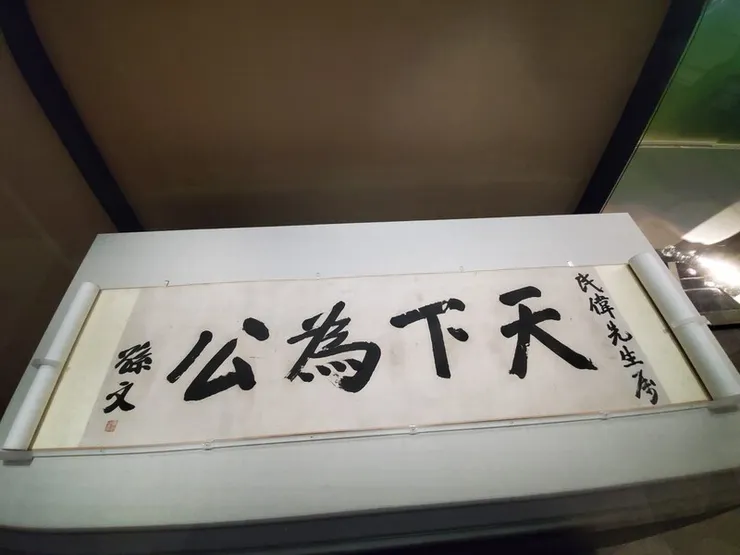 民偉先生屬
天下為公
孫文